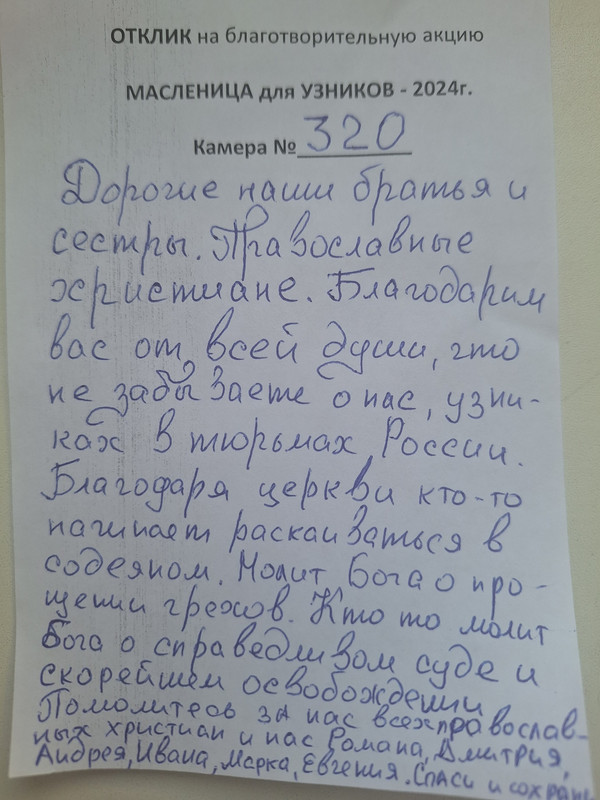 ОТКЛИК на благотворительную акцию
МАСЛЕНИЦА для УЗНИКОВ - 2024г.
Камера № 320
Дорогие наши братья и
сестры. Православные
христиане. Благодарим
вас от всей души, что
не забываете о нас, узни-
ках в тюрьмах России.
Благодаря церкви кто-то
начинает раскаиваться в
содеяном. Молит Бога о про-
щении грехов. Кто то молит
Бога о справедливом суде и
скорейшем освобождении
Помолитесь за нас всех православ-
ных христиан и нас Романа, Дмитрия,
Андрея, Ивана, Марка, Евгения. Спаси и сохрани